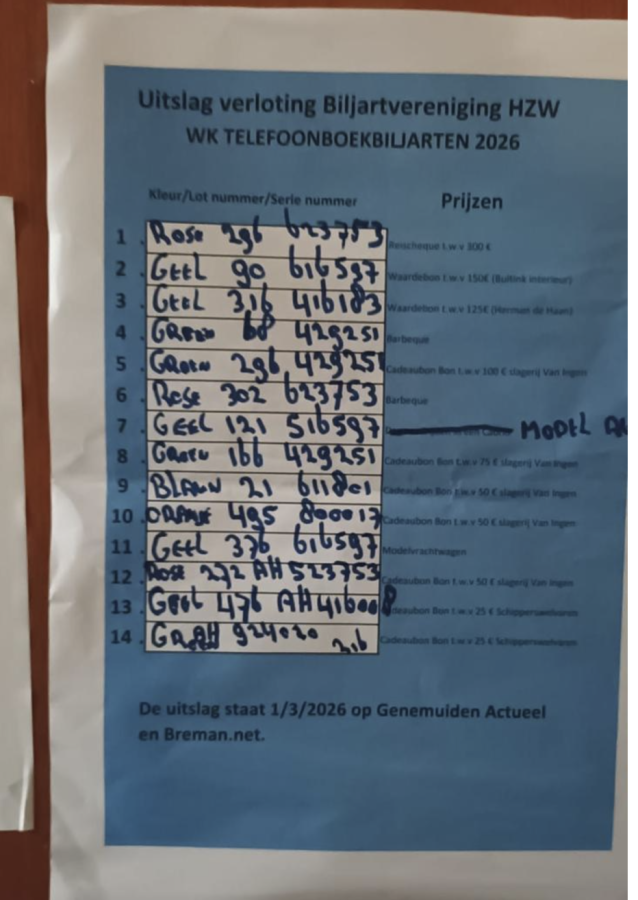 Uitslag verloting Biljartvereniging HZW
WK TELEFOONBOEKBILJARTEN 2026
Kleur/Lot nummer/Serie nummer Prijzen
1 Rose 296 623753 Reischeque t.w.v 300 €
2 GEEL 90 616597 Waardebon t.w.v 150€ (Buitink Interieur)
3 GEEL 316 416183 Waardebon t.w.v 125€ (Herman de Maan)
4 GROEN 68 429251 Barbeque
5 GROEN 296 429251 Cadeaubon Bon t.w.v 100 € slagerij Van Ingen
6 Rose 302 623753 Barbeque
7 GEEL 121 516597 MODEL
8 GROEN 166 429251 Cadeaubon Bon t.w.v 75 € slagerij Van Ingen
9 BLAUW 21 611801 Cadeaubon Bon t.w.v 50 € slagerij Van Ingen
10 ORANJE 495 800017 Cadeaubon Bon t.w.v 50 € slagerij Van Ingen
11 GEEL 376 616597 Modelvrachtwagen
12 Rose 272 AH 523753 Cadeaubon Bon t.w.v 50 € slagerij Van Ingen
13 GEEL 476 AH 416008 Cadeaubon Bon t.w.v 25 €
14 924020 216 Cadeaubon Bon t.w.v 25 €
De uitslag staat 1/3/2026 op Genemuiden Actueel
en Breman.net.